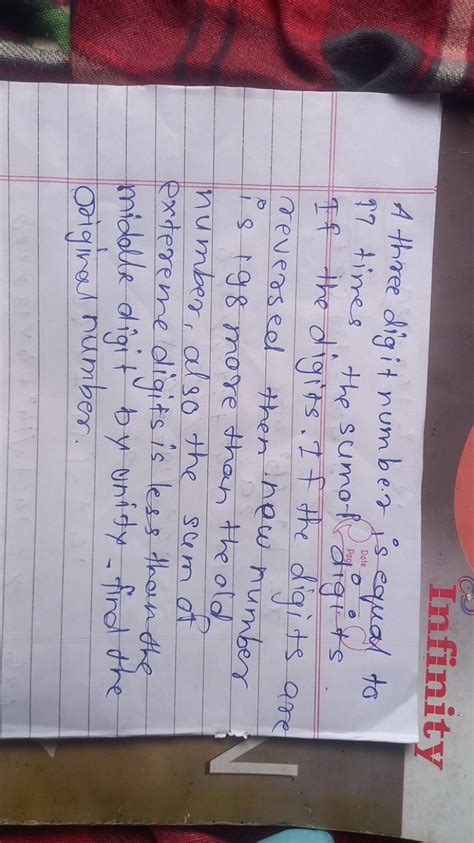 Infinity
Date
Page
A three digit number is equal to
17 times the sum of digits
If the digits. If the digits are
reversed then new number
is 198 more than the old
number, also the sum of
extereme digits is less than the
middle digit by unity - find the
original number.
N